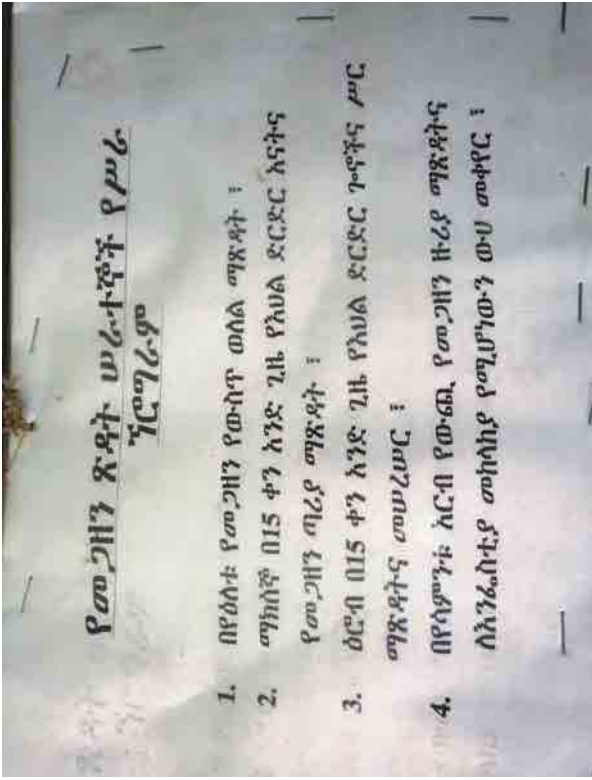 የመጋዘን ጽዳት ሠራተኞች የሥራ
ፕሮግራም
1. በየዕለቱ የመጋዘን የውስጥ ወለል ማጽዳት ፤
2. ማክሰኞ በ15 ቀን አንድ ጊዜ የእህል ድርድር አናትና
የመጋዘን ጣሪያ ማጽዳት ፤
3. ዕሮብ በ15 ቀን አንድ ጊዜ የእህል ድርድር ጐኖችና ሥር
ማጽዳትና መጠረመር ፤
4. በየሳምንቱ አርብ የውጪ የመጋዘን ዙሪያ ማጽዳትና
ለእንፌስቲያ መከላከያ የሚሆነውን ውሀ መቀየር ፤